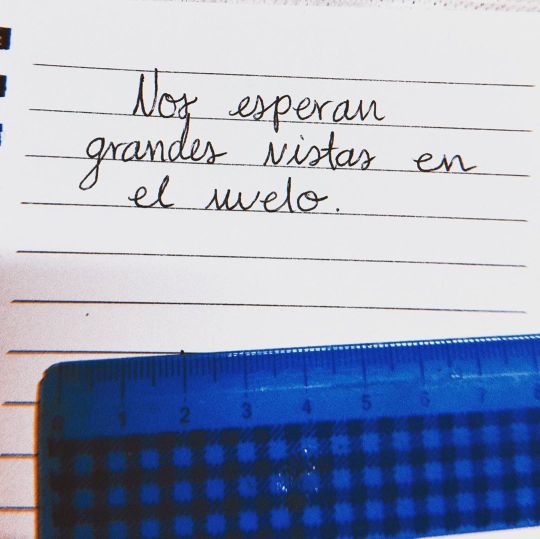 Nos esperan
grandes vistas en
el vuelo.
0 1 2 3 4 5 6 7 8